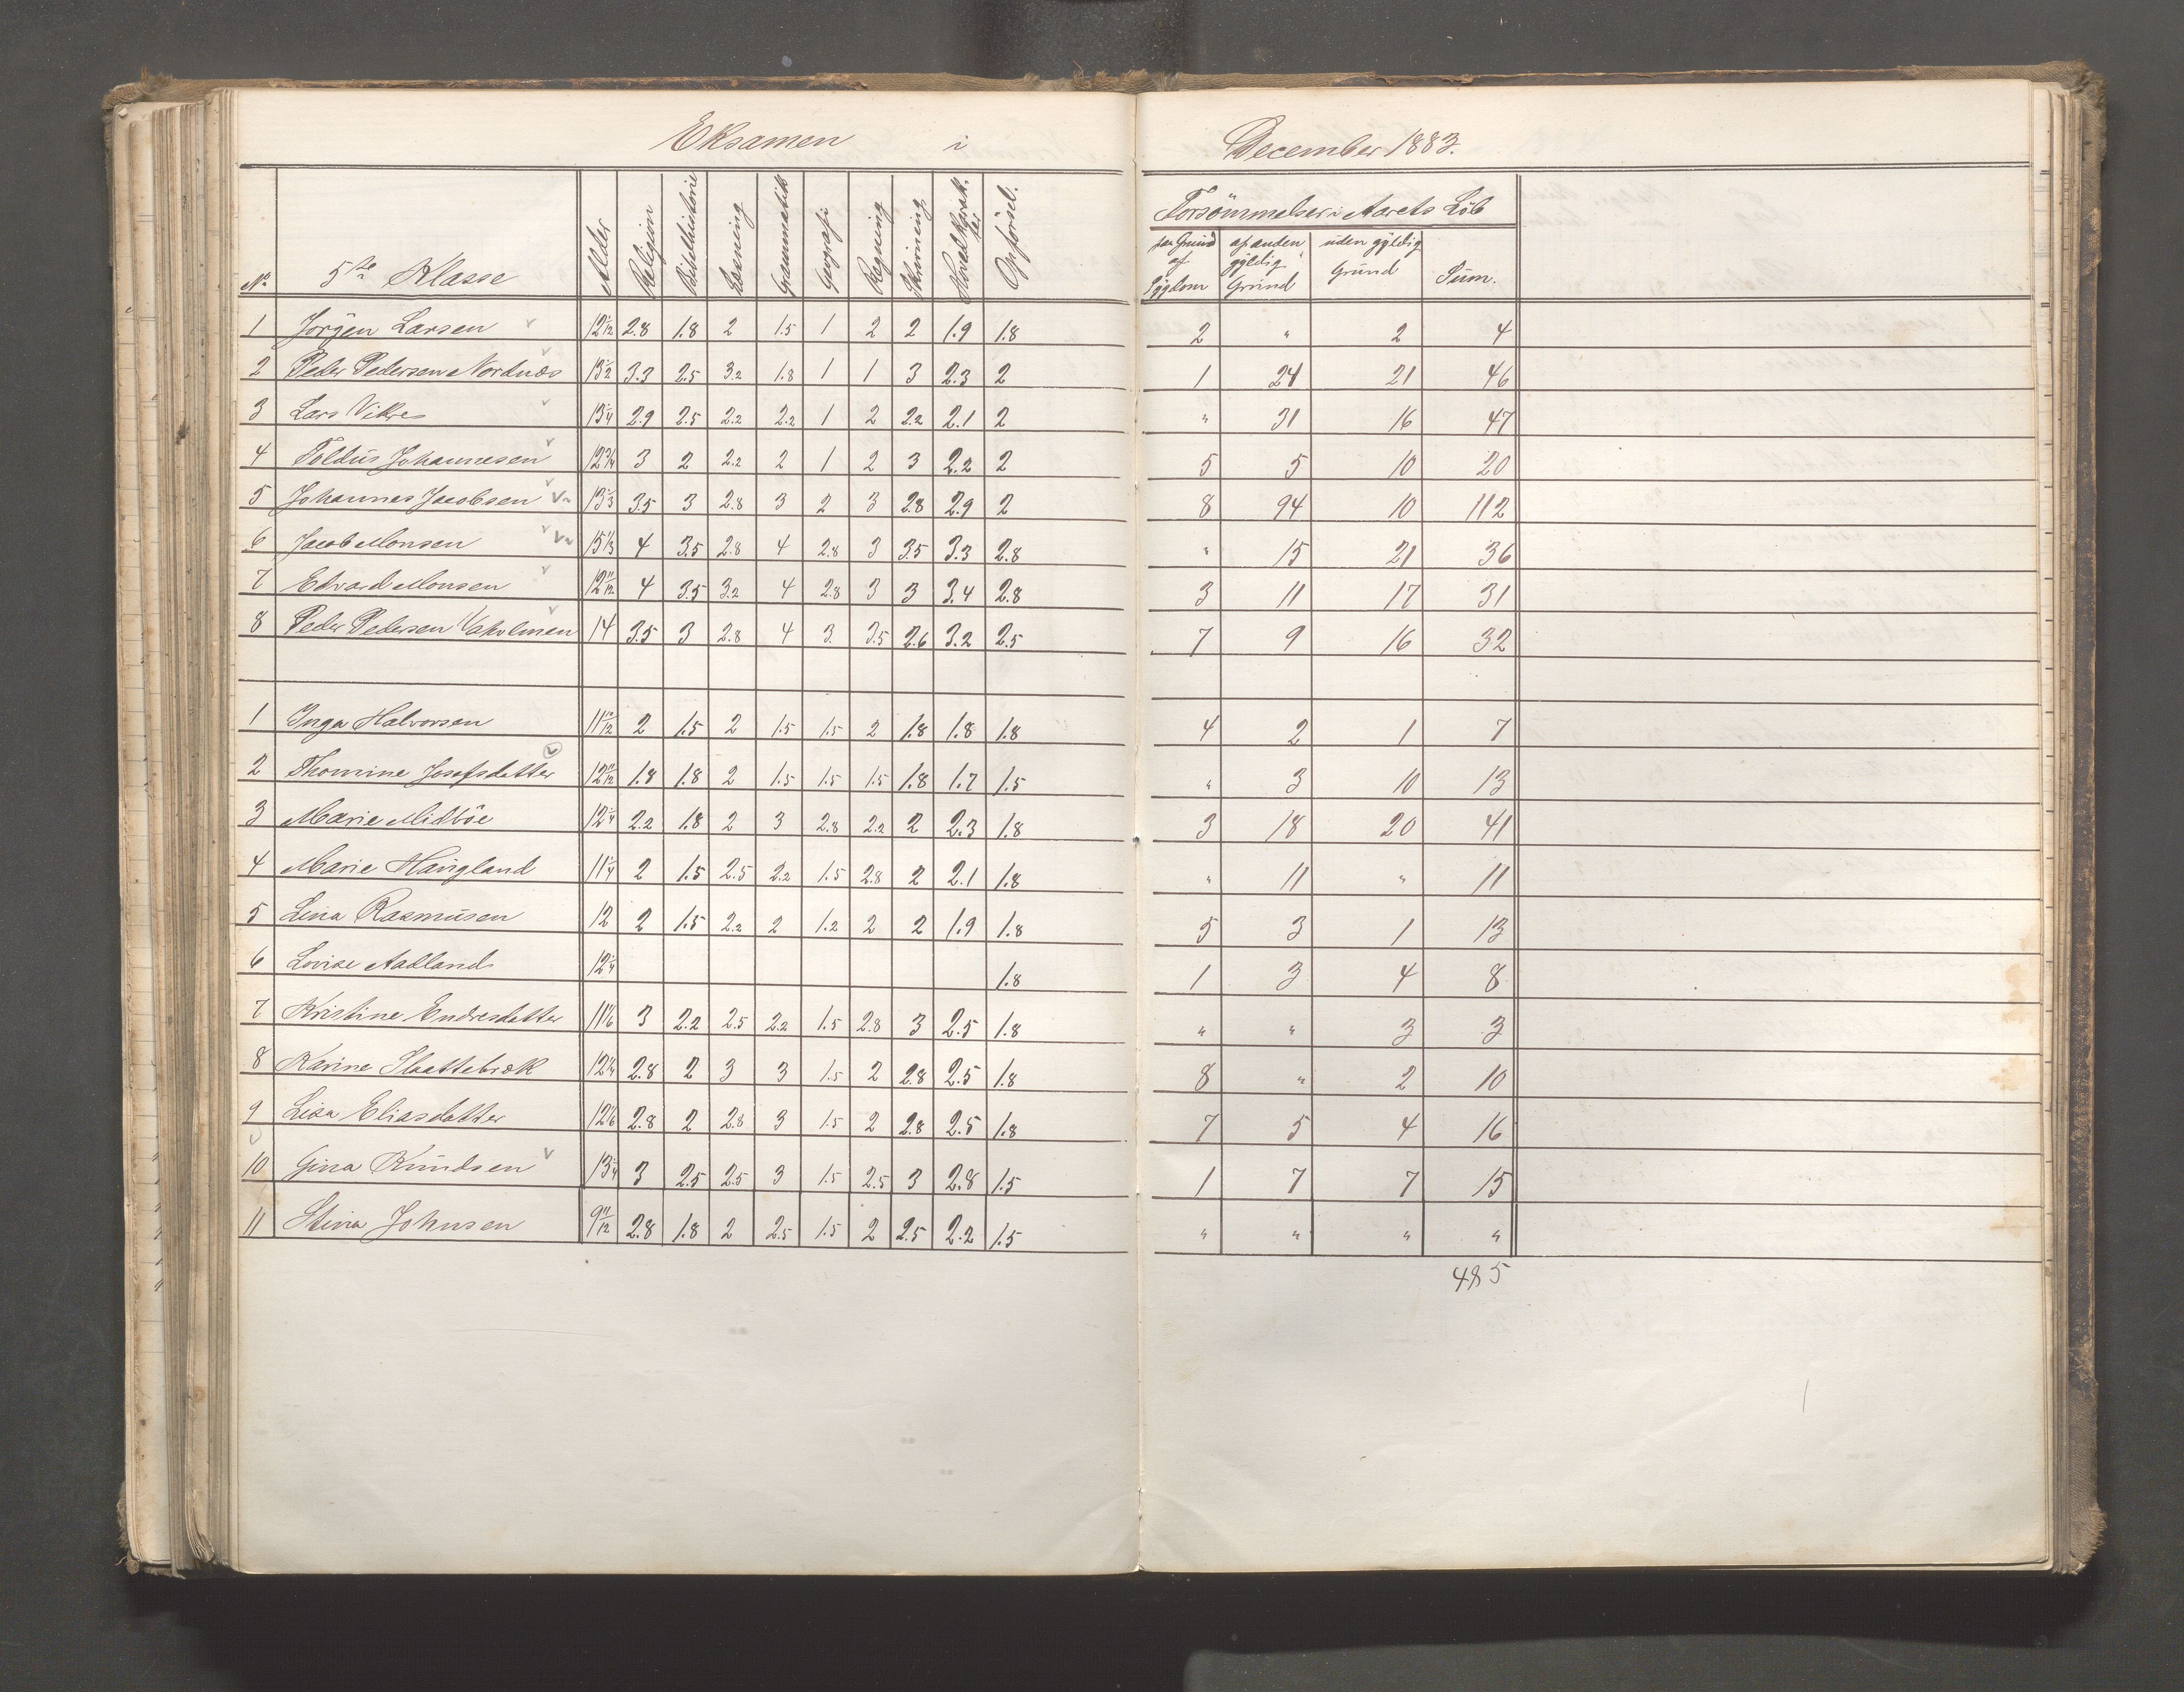 Eksamen i December 1883.
Forsömmelser i Aarets Löb
No 5te Klasse Alder Religion Bibelhistorie Læsning Grammatik Geografi Regning Skrivning Hovedkarakter Opförsel. paa Grund af Sygdom af anden gyldig Grund uden gyldig Grund Sum.
1 Jörgen Larsen 12 1/12 2.8 1.8 2 1.5 1 2 2 1.9 1.8 2 " 2 4
2 Peder Pedersen Nordnæs 13 1/2 3.3 2.5 3.2 1.8 1 1 3 2.3 2 1 24 21 46
3 Lars Vikre 13 1/4 2.9 2.5 2.2 2.2 1 2 2.2 2.1 2 " 31 16 47
4 Toldus Johannesen 12 3/4 3 2 2.2 2 1 2 3 2.2 2 5 5 10 20
5 Johannes Jacobsen 13 1/3 3.5 3 2.8 3 2 3 2.8 2.9 2 8 94 10 112
6 Jacob Monsen 15 1/3 4 3.5 2.8 4 2.8 3 3.5 3.3 2.8 " 15 21 36
7 Edvard Monsen 12 11/12 4 3.5 3.2 4 2.8 3 3 3.4 2.8 3 11 17 31
8 Peder Pedersen 14 3.5 3 2.8 4 3 3.5 2.6 3.2 2.5 7 9 16 32
1 Inga Halvorsen 11 10/12 2 1.5 2 1.5 1.5 2 1.8 1.8 1.8 4 2 1 7
2 Thomine Josefsdatter 12 11/12 1.8 1.8 2 1.5 1.5 1.5 1.8 1.7 1.5 " 3 10 13
3 Marie Midböe 12 1/4 2.2 1.8 2 3 2.8 2.2 2 2.3 1.8 3 18 20 41
4 Marie Haugland 11 1/4 2 1.5 2.5 2.2 1.5 2.8 2 2.1 1.8 " 11 " 11
5 Lina Rasmusen 12 2 1.5 2.2 2 1.2 2 2 1.9 1.8 5 3 1 13
6 Lovise Aadland 12 1/4 1.8 1 3 4 8
7 Kristine Endresdatter 11 1/6 3 2.2 2.5 2.2 1.5 2.8 3 2.5 1.8 " " 3 3
8 Karine Slaattebræk 12 1/4 2.8 2 3 3 1.5 2 2.8 2.5 1.8 8 " 2 10
9 Lisa Eliasdatter 12 1/6 2.8 2 2.8 3 1.5 2 2.8 2.5 1.8 7 5 4 16
10 Gina Knudsen 13 1/4 3 2.5 2.5 3 1.5 2.5 3 2.8 1.5 1 7 7 15
11 Stina Johnsen 9 11/12 2.8 1.8 2 2.5 1.5 2 2.5 2.2 1.5 " " " "
485